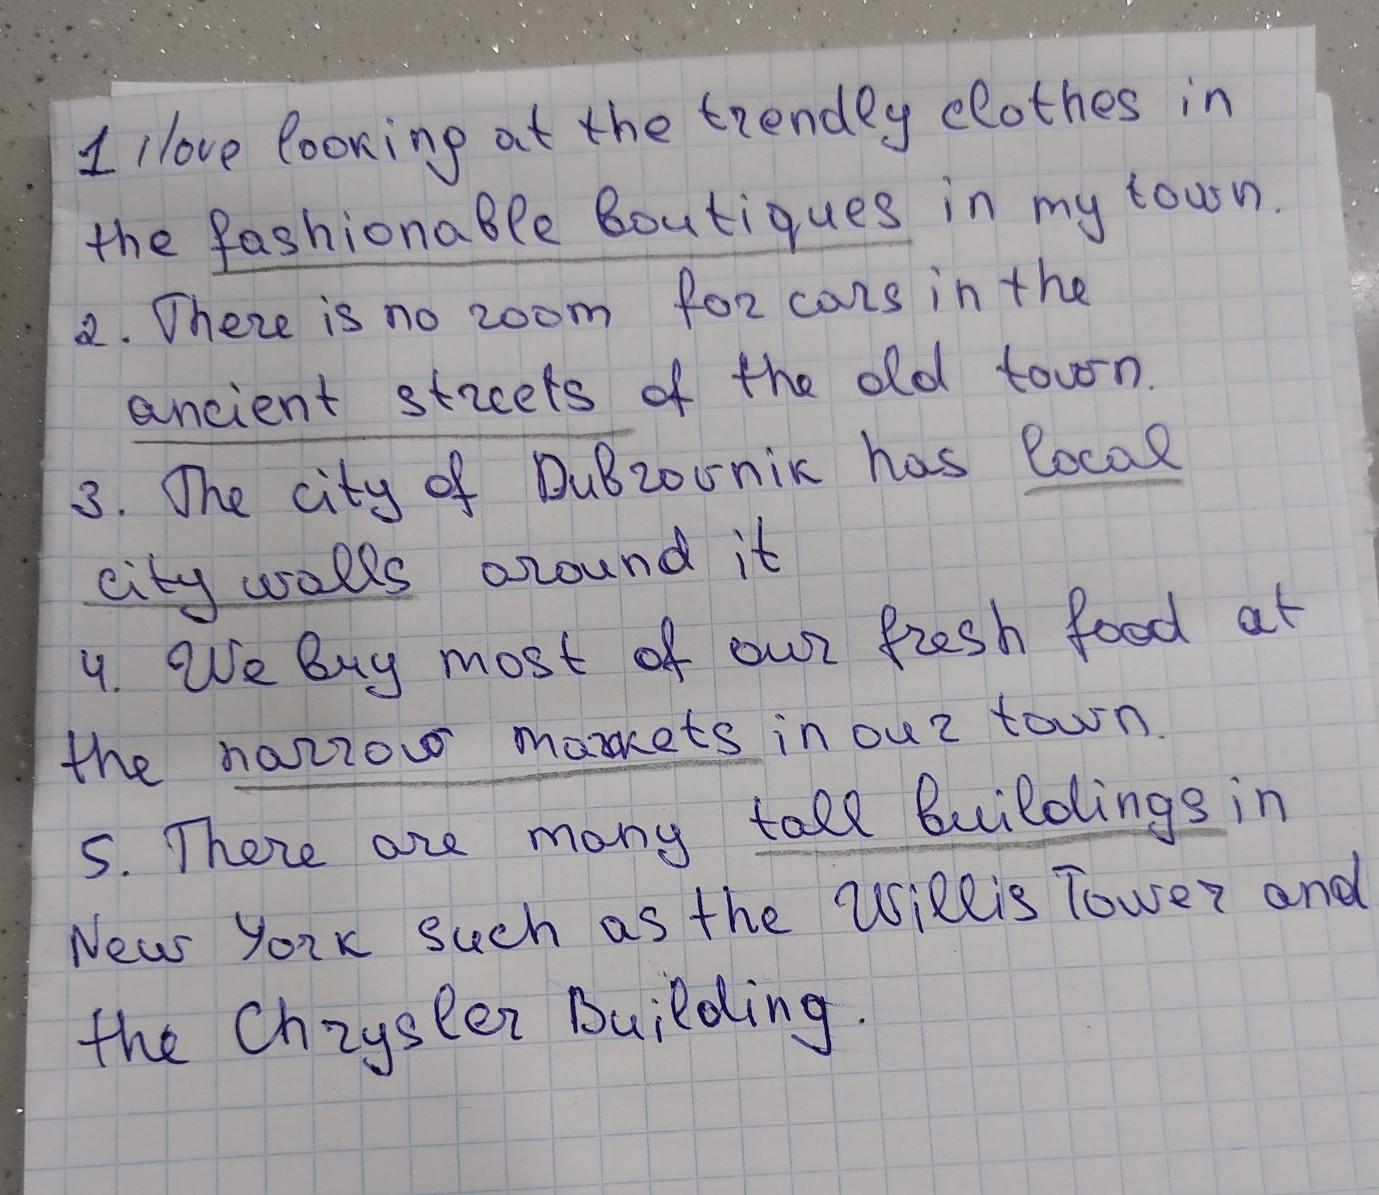 1 i love looking at the trendly clothes in
the fashionable boutiques in my town.
2. There is no room for cars in the
ancient streets of the old town.
3. The city of Dubrovnik has local
city walls around it
4. We buy most of our fresh food at
the narrow markets in our town.
5. There are many tall buildings in
New York such as the Willis Tower and
the Chrysler Building.